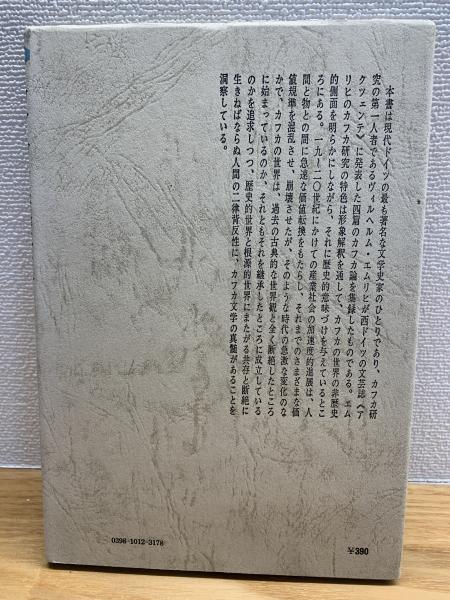 本書は現代ドイツの最も著名な文学史家のひとりであり、カフカ研
究の第一人者であるヴィルヘルム・エムリヒが西ドイツの文芸誌《ア
クツェンテ》に発表した四篇のカフカ論を集録したものである。エム
リヒのカフカ研究の特色は形象解釈を通して、カフカの世界の非歴史
的側面を明らかにしながら、それに歴史的意味づけを与えているとこ
ろにある。一九―二〇世紀にかけての産業社会の加速度的進展は、人
間と物との間に急速な価値転換をもたらし、それまでのさまざまな価
値規準を混乱させ、崩壊させたが、そのような時代の急激な変化のな
かで、カフカの世界は、過去の古典的な世界観と全く断絶したところ
に始まっているのか、それともそれを継承したところに成立している
のかを追求しつつ、歴史的世界と根源的世界にまたがる共存と断絶に
生きねばならぬ人間の二律背反性に、カフカ文学の真髄があることを
洞察している。
0398-1012-3178
¥390